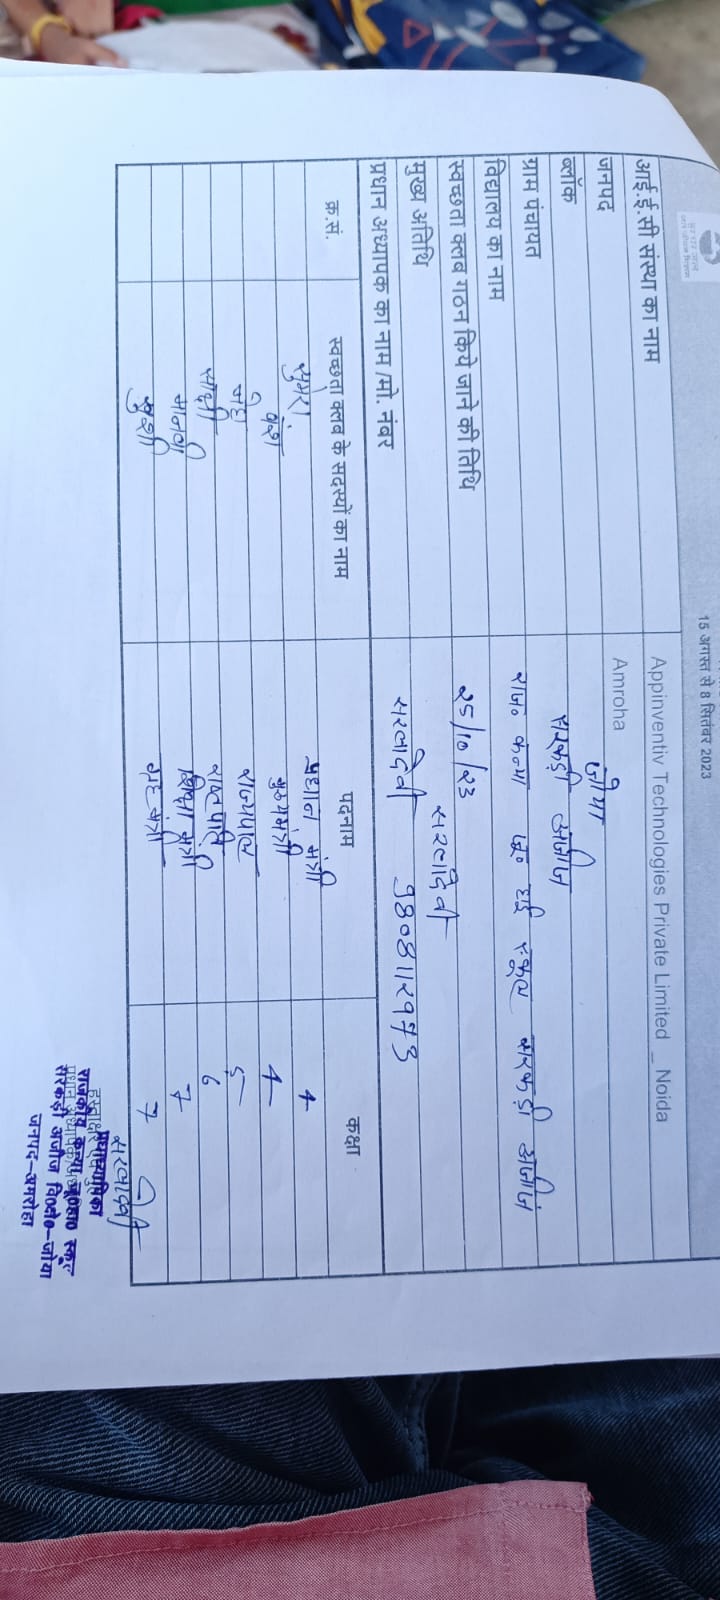 15 अगस्त से 8 सितंबर 2023
आई.ई.सी संस्था का नाम Appinventiv Technologies Private Limited _ Noida
जनपद Amroha
ब्लॉक जोया
ग्राम पंचायत सरकड़ी अजीज
विद्यालय का नाम राज० कन्या जू० हाई स्कूल सरकड़ी अजीज
स्वच्छता क्लब गठन किये जाने की तिथि २५/१०/२३
मुख्य अतिथि सरलादेवी
प्रधान अध्यापक का नाम /मो. नंबर सरलादेवी
क्र.सं. स्वच्छता क्लब के सदस्यों का नाम पदनाम कक्षा
प्रधान मंत्री
मुख्यमंत्री
राज्यपाल 5
राष्ट्रपति 6
मानवी शिक्षा मंत्री 7
खुशी 7
सरलादेवी
राजकीय कन्या जू०हा० स्कूल
सरकड़ी अजीज वि०क्षे०-जोया
जनपद-अमरोहा